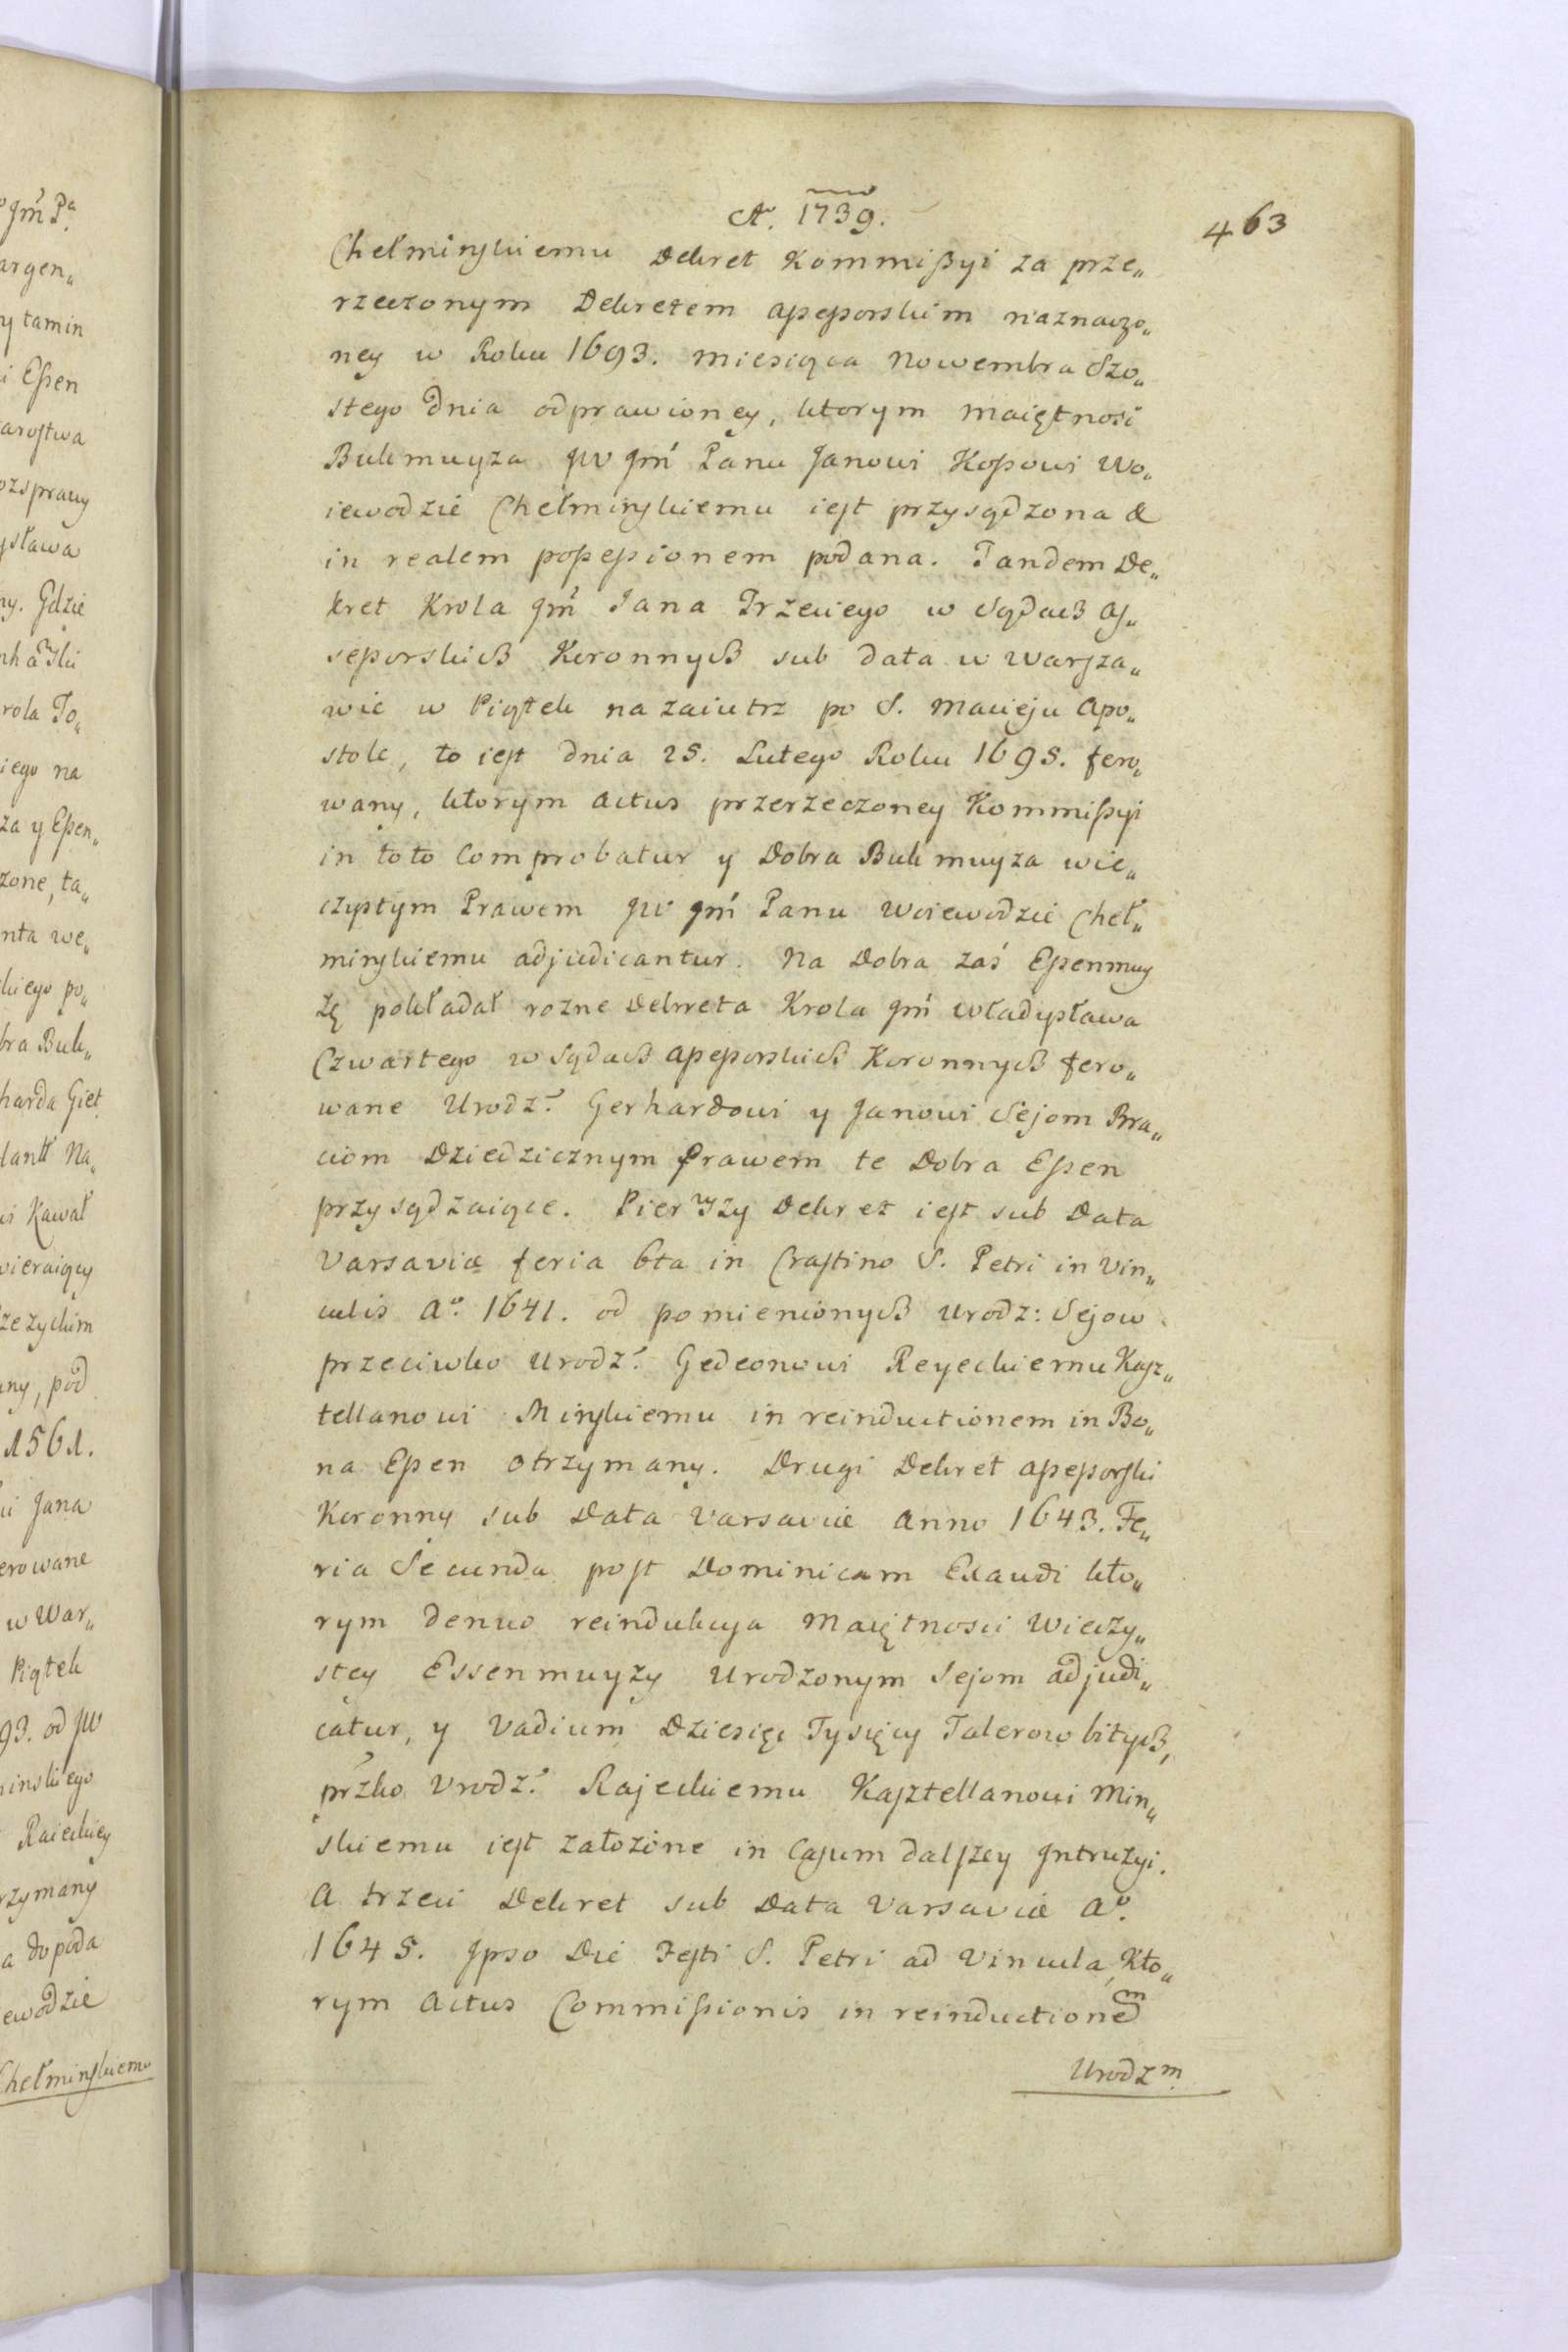 Ao. 1739.
463
Chełminskiemu Dekret Kommissyi za prze„
rzeczonym Dekretem assessorskim naznaczo„
ney w Roku 1693. miesiąca Nowembra Szo„
stego dnia odprawioney, ktorym maiętnosć
Bukmuyza JW Jm Panu Janowi Kossowi Wo„
iewodzie Chełminskiemu iest przysądzona &
in realem possessionem podana. Tandem De„
kret Krola Jm Jana Trzeciego w Sądach As„
sessorskich Koronnych sub data w Warsza„
wie w Piątek nazaiutrz po S. Macieju Apo„
stole, to iest dnia 25. Lutego Roku 1695. fero„
wany, ktorym Actus przerzeczoney Kommissyi
in toto Comprobatur y Dobra Bukmuyza wie„
czystym Prawem JW Jm Panu Woiewodzie Cheł„
minskiemu adjudicantur. Na Dobra zaś Essenmuy
zę pokładał rozne Dekreta Krola Jm Władysława
Czwartego w Sądach assessorskich Koronnych fero„
wane Urodz. Gerhardowi y Janowi Sejom Bra„
ciom Dziedzicznym Prawem te Dobra Essen
przysądzaiące. Pierwszy Dekret iest sub Data
Varsaviæ feria 6ta in Crastino S. Petri in Vin„
culis Ao. 1641. od pomienionych Urodz: Sejow
przeciwko Urodz. Gedeonowi Reyeckiemu Kasz„
tellanowi Minskiemu in reinductionem in Bo„
na Essen otrzymany. Drugi Dekret assessorski
Koronny sub Data Varsaviæ Anno 1643. Fe„
ria Secunda post Dominicam Exaudi kto„
rym denuo reindukcya Maiętnosci Wieczy„
stey Essenmuyzy Urodzonym Sejom adjudi„
catur, y Vadium Dziesięć Tysięcy Talerow bitych,
przko Urodz. Rajeckiemu Kasztellanowi Min„
skiemu iest założone in Casum dalszey Intruzyi.
A trzeci Dekret sub Data Varsaviæ Ao.
1645. Ipso Die Festi S. Petri ad Vincula, Kto„
rym Actus Commissionis in reinductionem
Urodzm